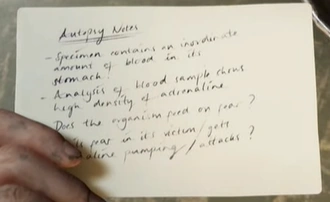 Autopsy Notes
- Specimen contains an inordinate
amount of blood in its
stomach!
- Analysis of blood sample shows
high density of adrenaline
Does the organism feed on fear?
fear in its victim/gets
pumping/attacks?